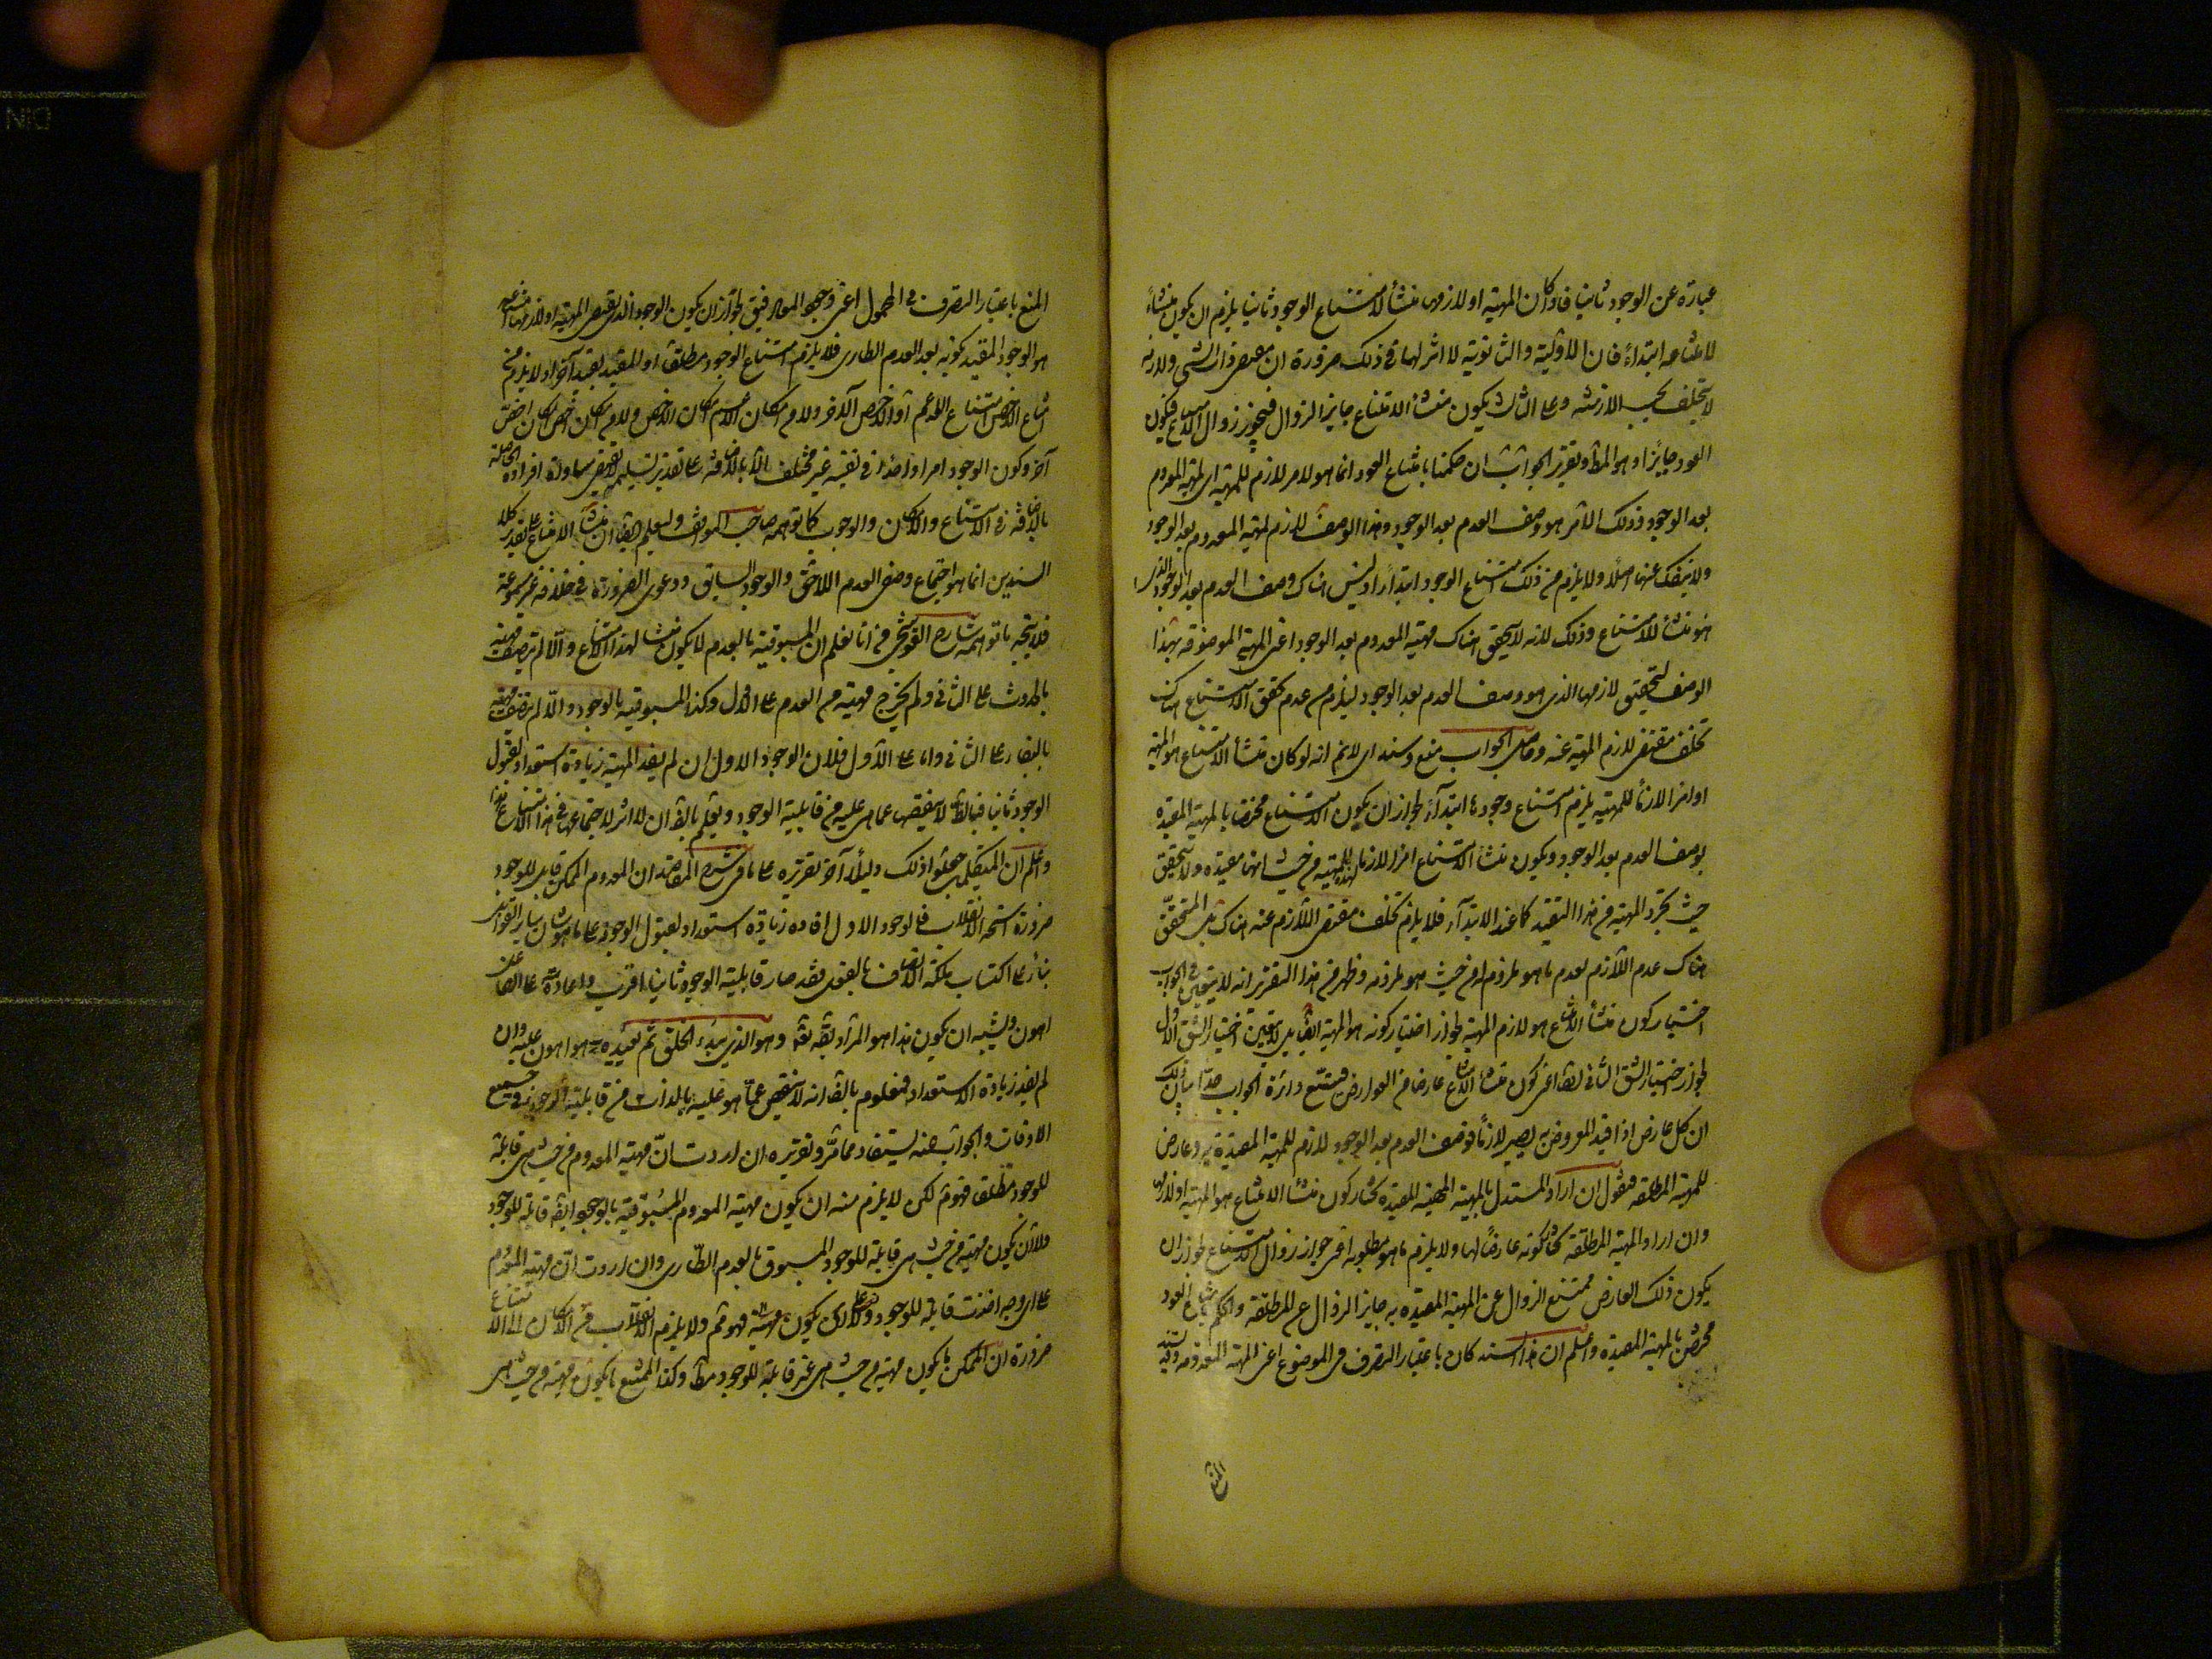 عبارة عن الوجود ثانيا فلو كان المهية او لازمها منشأ لامتناع الوجود ثانيا يلزم ان يكون منشأ
لامتناعه ابتداء فان الاولية والثانوية لا اثر لها في ذلك ضرورة ان مقتضى ذات الشئ ولازمه
لا يتخلف بحسب الازمنة وعلى الثالث يكون منشأ الامتناع جايز الزوال فيجوز زوال الامتناع فيكون
العود جايزا وهو المط وتقرير الجواب ان حكمنا بامتناع العود انما هو لامر لازم للمهية اى لمهية المعدوم
بعد الوجود وذلك الامر هو وصف العدم بعد الوجود وهذا الوصف لازم لمهية المعدوم بعد الوجود
ولا ينفك عنها اصلا ولا يلزم من ذلك امتناع الوجود ابتداء اذ ليس هناك وصف العدم بعد الوجود الذى
هو منشأ للامتناع وذلك لانه لا يتحقق هناك مهية المعدوم بعد الوجود اعنى المهية الموصوفة بهذا
الوصف لتحقق لازمها الذى هو وصف العدم بعد الوجود ليلزم من عدم تحقق الامتناع هناك
تخلف مقتضى لازم المهية عنه وحاصل الجواب منع وسند اى لا نم انه لو كان منشأ الامتناع هو المهية
او امرا لازما للمهية يلزم امتناع وجودها ابتداء لجواز ان يكون الامتناع مختصا بالمهية المقيدة
بوصف العدم بعد الوجود ويكون منشأ الامتناع امرا لازما لهذه المهية من حيث انها مقيدة ولا يتحقق
حيث تجرد المهية من هذا التقييد كما عند الابتداء فلا يلزم تخلف مقتضى اللازم عنه هناك بل المتحقق
هناك عدم اللازم لعدم ما هو ملزوم له من حيث هو ملزومه وظهر من هذا التقرير انه لا يتعين في الجواب
اختيار كون منشأ الامتناع هو لازم المهية لجواز اختيار كونه هو المهية ايضا بل لا يتعين اختيار الشق الاول
لجواز اختيار الشق الثانى ايضا اعنى كون منشأ الامتناع عارضا من العوارض فيتسع دائرة الجواب جدا بيان ذلك
ان كل عارض اذا قيد المعروض به يصير لازما فوصف العدم بعد الوجود لازم للمهية المقيدة به وعارض
للمهية المطلقة فنقول ان اراد المستدل بالمهية المهية المقيدة نختار كون منشأ الامتناع هو المهية او لازمها
وان اراد المهية المطلقة نختار كونه عارضا لها ولا يلزم ما هو مطلوبه اعنى جواز زوال الامتناع لجواز ان
يكون ذلك العارض ممتنع الزوال عن المهية المقيدة به جايز الزوال عن المطلقة والحكم بامتناع العود
مختص بالمهية المقيدة واعلم ان هذا السند كان باعتبار التصرف فى الموضوع اعنى المهية المعدومة وقد يسند
المنع
المنع باعتبار التصرف فى المحمول اعنى وجود المعاد فيق لجواز ان يكون الوجود الذى يقتضى المهية او لازمها امتناعه
هو الوجود المقيد بكونه بعد العدم الطارى فلا يلزم امتناع الوجود مطلقا او المقيد بقيد آخر اذ لا يلزم من
امتناع الاخص امتناع الاعم او الاخص الآخر ولا من امكان الاعم امكان الاخص ولا من امكان اخص امكان اخص
آخر وكون الوجود امرا واحدا فى نفسه غير مختلف الا بالاضافة وعلى تقدير تسليمه لا يقتضى مساواة افراده الحاصلة
بالاضافة فى الامتناع والامكان والوجوب كما توهمه صاحب المواقف وليعلم ايضا ان منشأ الامتناع على تقدير كلا
السندين انما هو اجتماع وصفى العدم اللاحق والوجود السابق ودعوى الضرورة فى خلافه غير مسموعة
فلا يتجه ما توهمه شارح القوشجى من انا نعلم ان المسبوقية بالعدم لا يكون منشأ لهذا الامتناع والا لم يتصف مهية
بالحدوث على الثانى ولم يخرج مهية من العدم على الاول وكذا المسبوقية بالوجود والا لم يتصف مهية
بالبقاء على الثانى واما على الاول فلان الوجود الاول ان لم يفد المهية زيادة استعداد لقبول
الوجود ثانيا فبالضرورة لا ينقص عما هى عليه من قابلية الوجود ونعلم بالضرورة ان لا اثر لاجتماعهما فى هذا الامتناع هذا
واعلم ان المتكلمين جعلوا ذلك دليلا آخر تقريره على ما فى شرح المقاصد ان المعدوم الممكن قابل للوجود
ضرورة استحالة الانقلاب فالوجود الاول افاده زيادة استعداد لقبول الوجود على ما هو شان ساير القوابل
بناء على اكتساب ملكة الاتصاف بالفعل فقد صار قابليته للوجود ثانيا اقرب واعادته على الفاعل
اهون ويشبه ان يكون هذا هو المراد بقوله تعالى وهو الذى يبدء الخلق ثم يعيده وهو اهون عليه وان
لم يفد زيادة الاستعداد فمعلوم بالضرورة انه لا ينقص عما هو عليه بالذات من قابلية الوجود فى جميع
الاوقات والجواب عنه يستفاد مما مر وتقريره ان اردت ان مهية المعدوم من حيث هى قابلة
للوجود مطلقا فهو مم لكن لا يلزم منه ان يكون مهية المعدوم المسبوقة بالوجود ايضا قابلة للوجود
ولا ان يكون مهيته من حيث هى قابلة للوجود المسبوق بالعدم الطارى وان اردت ان مهية المعدوم
على اى وجه اخذت قابلة للوجود والا لم يكن يكون مهيته فهو مم ولا يلزم الانقلاب من الامكان الى الامتناع
ضرورة ان الممكن ما يكون مهيته من حيث هى غير قابلة للوجود مط وكذا الممتنع ما يكون مهيته من حيث هى